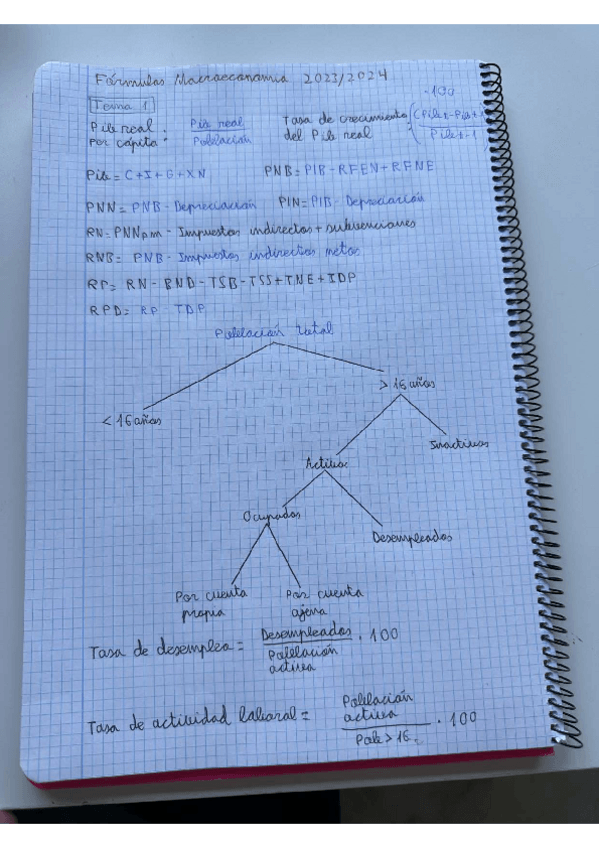 Fórmulas Macroeconomía 2023/2024
Tema 1
Pib real per cápita = Pib real / Población
Tasa de crecimiento del Pib real = (Pib t - Pib t-1 / Pib t-1) · 100
Pib = C+I+G+XN
PNB = PIB - RFEN + RFNE
PNN = PNB - Depreciación
PIN = PIB - Depreciación
RN = PNNpm - Impuestos indirectos + subvenciones
RNB = PNB - Impuestos indirectos netos
RP = RN - BND - TSB - TSS + TNE + IDP
RPD = RP - TDP
Población total
< 16 años
> 16 años
Activos
Inactivos
Ocupados
Desempleados
Por cuenta propia
Por cuenta ajena
Tasa de desempleo = Desempleados / Población activa · 100
Tasa de actividad laboral = Población activa / Pob > 16 · 100